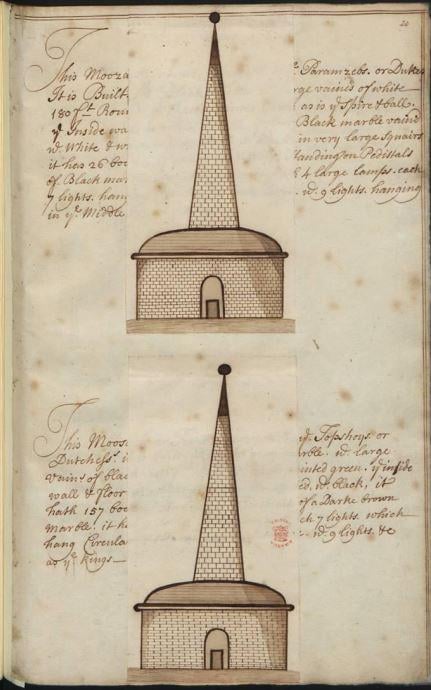 20
This Mooza
It is Built
180 ft Roun
ye Inside wa
wt White & w
it has 26 boo
of Black mar
7 lights. hang
in ye Middle
Paramzebs. or Dukes
rge vained of white
as is ye Spire & ball.
Black marble vained
in very large Squairs
tanding on Pedistals
& 4 large lamps. each
wt. 9 lights. hanging
This Moos
Dutchess's i
vains of blac
wall & floor
hath 157 boo
Marble. it h
hang Circula
as ye Kings
ye. Topshoys. or
rble. wt. large
inted green. ye inside
d. wt black, it
of a Darke brown
ch 7 lights. which
wt. 9 lights. &c